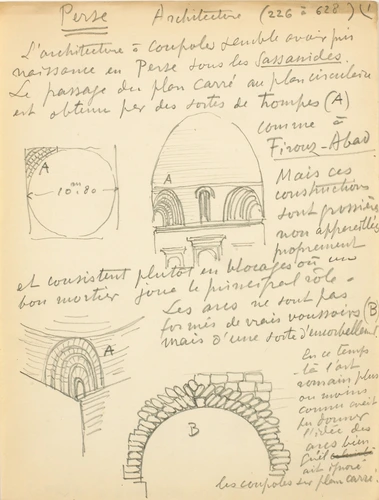 Perse Architecture (226 à 628) (1
L'architecture à coupoles semble avoir pris
naissance en Perse sous les Sassanides.
Le passage du plan carré au plan circulaire
est obtenu par des sortes de trompes (A)
comme à
Firouz-Abad
A
10.80
A
Mais ces
constructions
sont grossières
non appareillées
proprement
et consistent plutôt en blocages où un
bon mortier joue le principal rôle.
Les arcs ne sont pas
formés de vrais voussoirs (B)
mais d'une sorte d'encorbellement
A
B
En ce temps
là l'art
romain plus
ou moins
connu avait
pu donner
l'idée des
arcs bien
qu'il
ait ignoré
les coupoles sur plan carré.